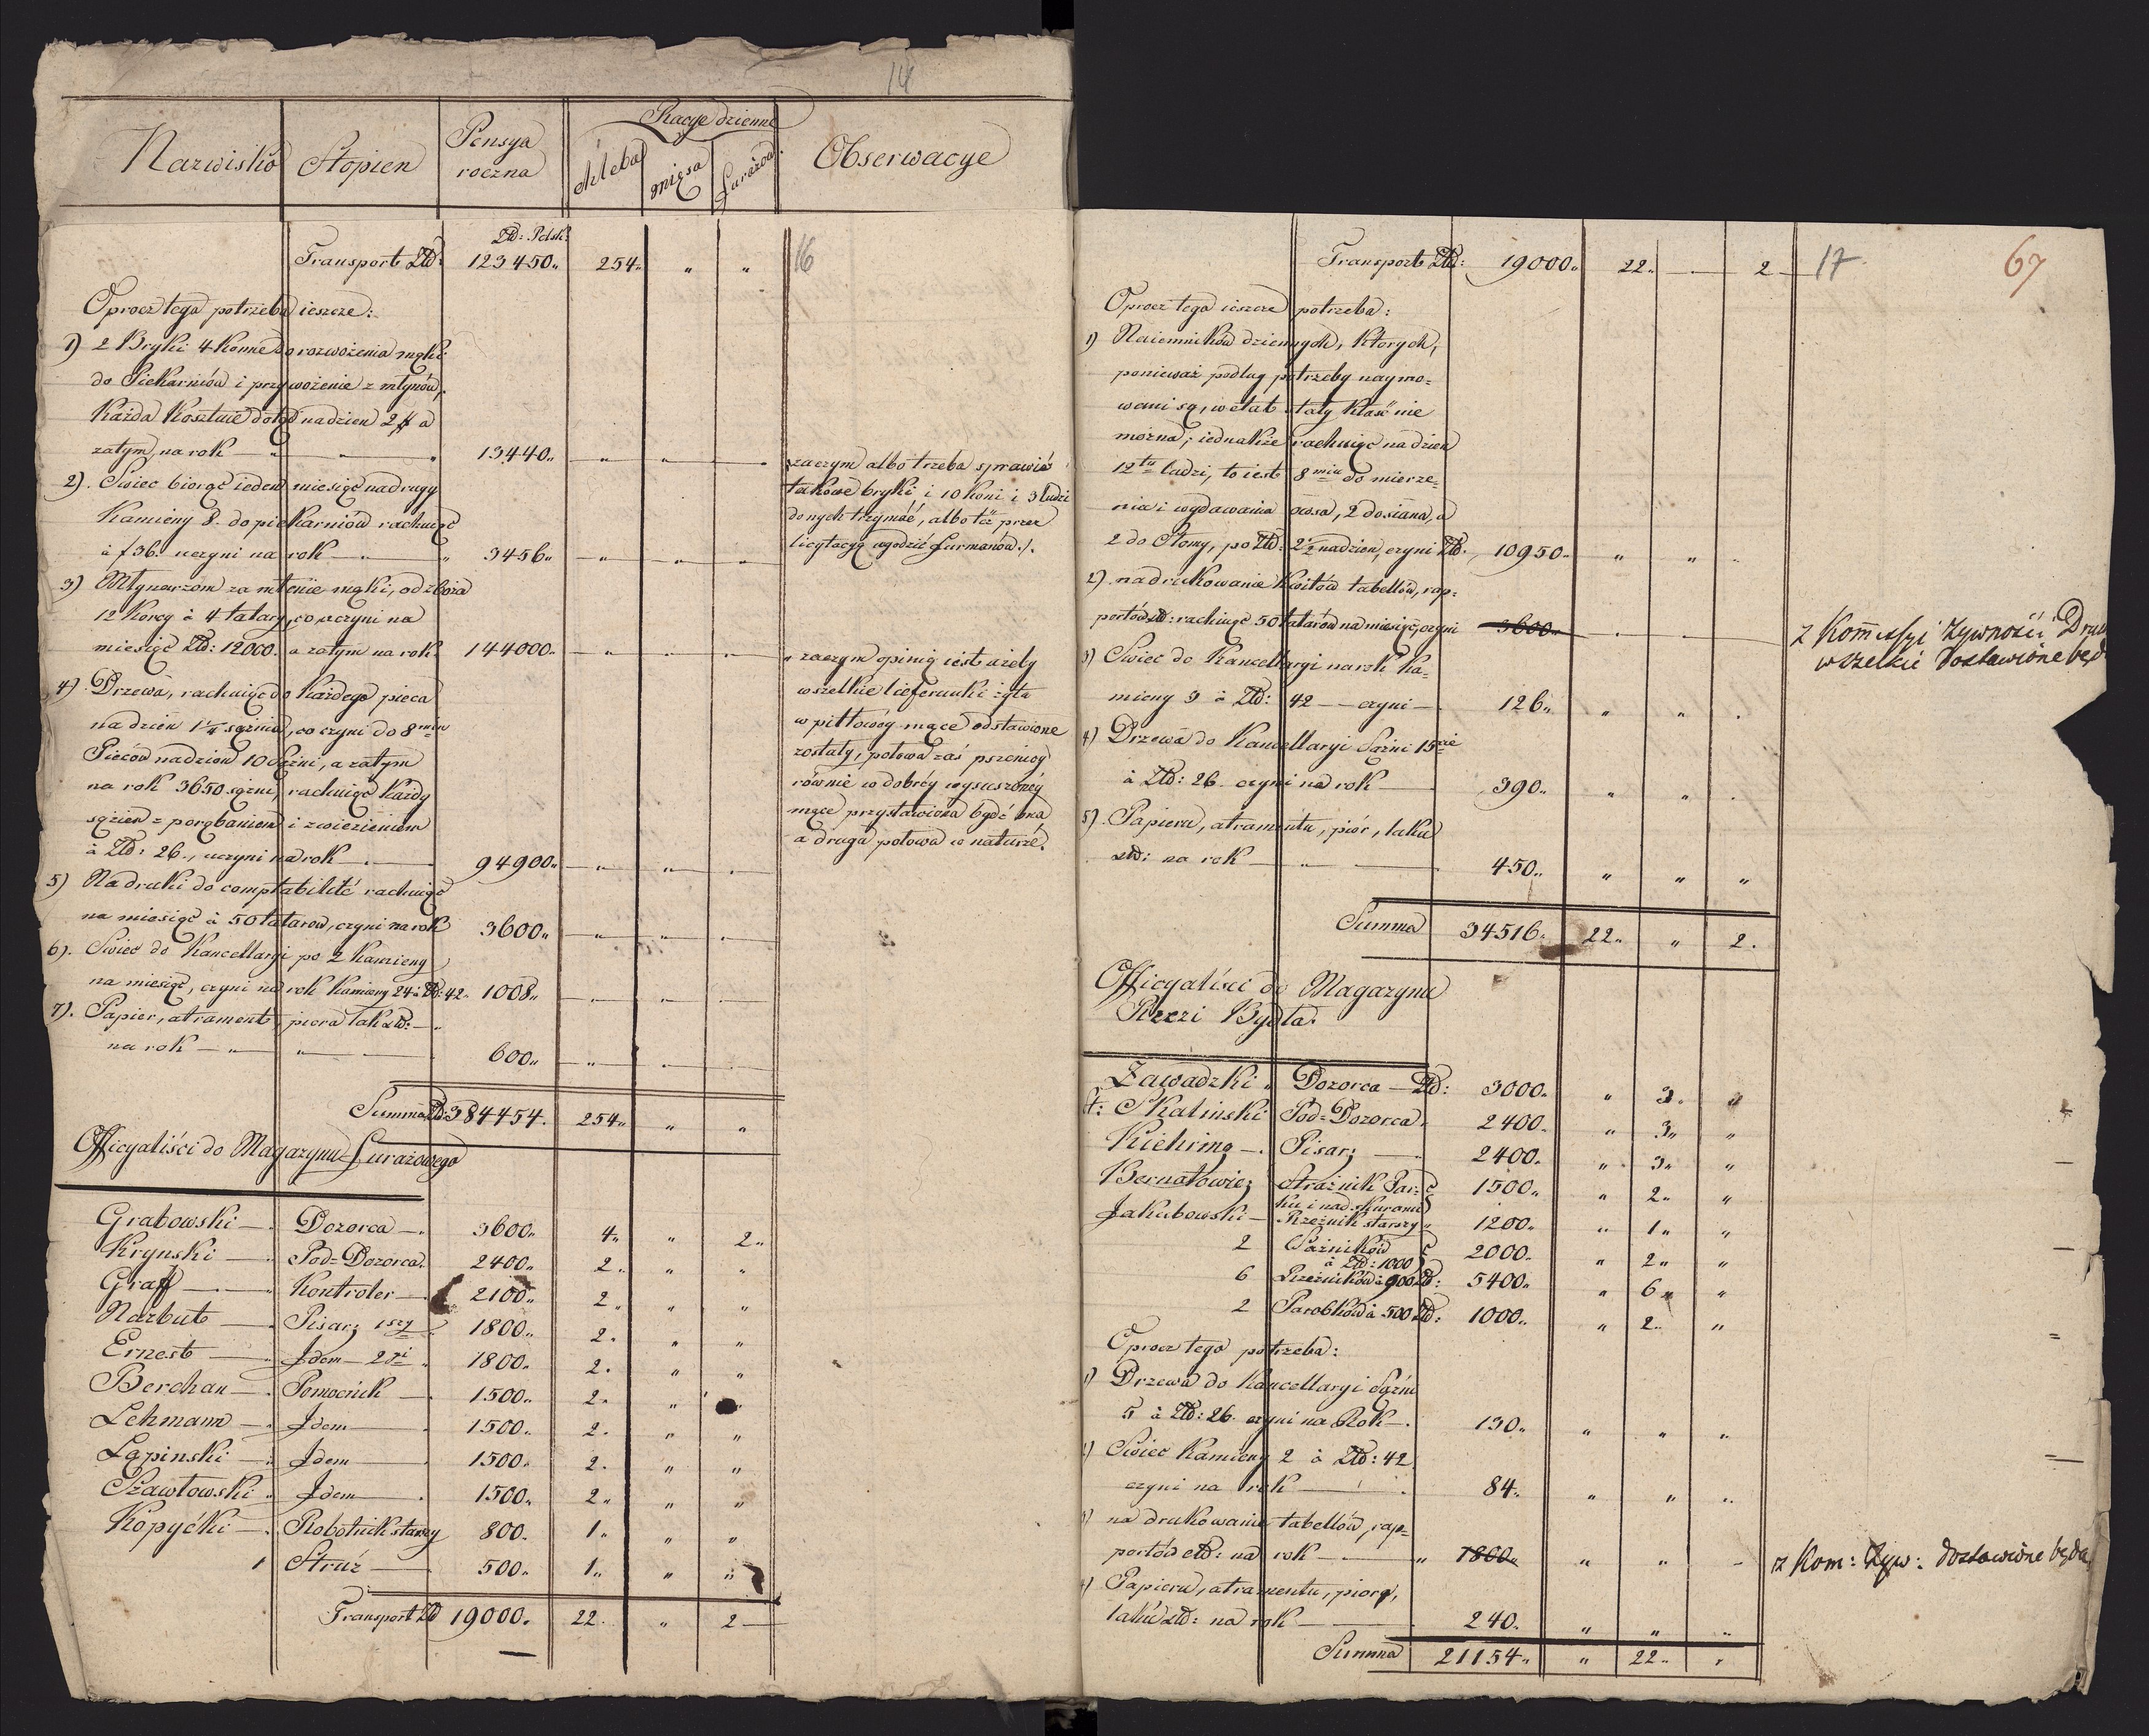 14
Nazwisko Stopien Pensya roczna Racye dzienne Obserwacye
chleba mięsa Furażow.
Złd: Polsk:
Transport Złd: 123450 „ 254 „ „ „ 16
Oprocz tego potrzeba ieszcze:
1) 2 Bryki 4 Konne do rozwożenia mąki
do Piekarniów i przywożenie z młynów,
Każda Kosztuie dotąd na dzien 2 # a
zatym na rok — „ — 13440 „ „ „
2). Swiec biorąc ieden miesiąc na drugy
Kamieny 8. do piekarniów rachuiąc
à f 36. uczyni na rok — „ — „ 3456 „ „ „ „
zaczym albo trzeba sprawić
takowe bryki i 10 Koni i 3 ludzi
do nych trzymać, albo też przez
licytacyą ugodzić Furmanów ./.
3) Młynarzom za mlenie mąki, od zboża
12 Korcy à 4 talary, co uczyni na
miesiąc Złd: 12000. a zatym na rok 144000 „ „ „
4). Drzewa, rachuiąc do Każdego pieca
na dzien 1¼ sążnia, co czyni do 8miu
Pieców na dzien 10 Sążni, a zatym
na rok 3650 sążni, rachuiąc Każdy
sążien z porąbaniem i zwiezieniem
à Złd: 26., uczyni na rok — . — 94900 „ „ „
„ zaczym opinią iest ażeby
wszelkie lieferunki żyta
w pitlowey mące odstawione
zostały, połowa zaś pszenicy
równie w dobréy wysuszonéy
mące przystawiona bydź ma
a druga połowa w naturze.
5) Na druki do comptabilité rachuiąc
na miesiąc à 50 talarow, czyni na rok 3600 „ „ „
6). Swiec do Kancellaryi po 2 Kamieny
na miesiąc, czyni na rok Kamieny 24 à Złd: 42 „ 1008 „ „ „
7). Papier, atrament, piora lak etd: —
na rok — „ — „ — 600 „ „
Summa Złd 384454. 254 „ „ „
Officyaliści do Magazynu Furażowego
Grabowski — Dozorca — 3600 „ 4 „ „ 2 „
Krynski — Pod-Dozorca 2400 „ 2 „ „ „
Graff — Kontroler — 2100 „ 2 „ „ „
Narbut — Pisarz 1szy 1800 „ 2. „ „
Ernest — Idem — 2gi „ 1800 „ 2. „ „
Berchan — Pomocnik — 1500 „ 2. „ „
Lehmann — Idem — 1500 „ 2. „ „
Łapinski — Idem — 1500 „ 2. „ „
Szawłowski „ Idem — . 1500 „ 2 „ „ „
Kopyćki — Robotnik starszy 800. 1 „ „ „
1 Struż — 500 „ 1 „ „ „
Transport Złd 19000 „ 22. „ 2 —
Transport Złd: 19000 „ 22 „ — 2 — 17 67
Oprocz tego ieszcze potrzeba:
1) Naiemników dziennych, Ktorych,
ponieważ podług potrzeby naymo-
wani są, w etat stały Kłaść nie
można; iednakże rachuiąc na dzien
12tu ludzi, to iest 8miu do mierze-
nia i wydawania owsa, 2 do siana, a
2 do Słomy, po Złd: 2½ na dzien, czyni Złd: 10950 „ „ „ „
2). na drukowanie Kwitów tabellów, rap-
portów etd: rachuiąc 50 talarów na miesiąc, czyni 3600 „ . —
z Kommissyi Żywności Druki
wszelkie dostawione będ
3) Swiec do Kancellaryi na rok Ka-
mieny 3 à Złd: 42 — — czyni — 126 „ „ „ .
4) Drzewa do Kancellaryi Sążni 15cie
à Złd: 26. czyni na rok — 390 „ „ „ .
5). Papieru, atramentu, piór, laku
etd: na rok — „ — 450 „ „ „ „
Summa 34516 „ 22 „ „ 2.
Officyaliści do Magazynu
Rzezi Bydła.
Zawadzki „ Dozorca — Złd: 3000 „ „ 3 „ „
Skalinski Pod-Dozorca „ 2400 „ „ 3 „ „
Kiehring — . Pisarz — 2400 „ „ 3 „ „
Bernatowicz Strażnik Par-
ku i nad skurami 1500 „ „ 2 „ „
Jakubowski — Rzeźnik starszy „ 1200 „ „ 1 „ „
2 Łaźników
à Złd: 1000 2000 „ „ 2 „ „
6 Rzeźników à 900 Złd: 5400 „ „ 6 „ „
2 Parobków à 500 Złd: 1000 „ „ 2 „ „
Oprocz tego potrzeba:
1) Drzewa do Kancellaryi Sążni
5 à Złd: 26. czyni na Rok — . 130 „ „ „ „
2) Swiec Kamieny 2 à Złd: 42
czyni na rok — 84 „ „ „ „
3) na drukowanie tabellów, rap-
portów etd: na rok — „ 1800 „ „ „ –
z Kom: Żyw: dostawione będą
4) Papieru, atramentu, piora,
laku etd: na rok — 240 „ „ „ „
Summa 21154 „ „ 22 „ „